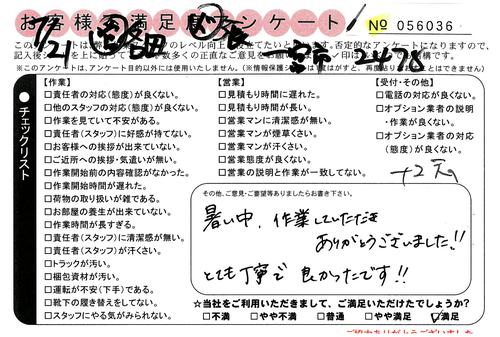 お客様ご満足度アンケート
№ 056036
7/21
※このアンケートは、アンケート目的以外には使用いたしません。
●チェックリスト
【作業】
□責任者の対応(態度)が良くない。
□他のスタッフの対応(態度)が良くない。
□作業を見ていて不安がある。
□責任者(スタッフ)に好感が持てない。
□お客様への挨拶が出来ていない。
□ご近所への挨拶・気遣いが無い。
□作業開始前の内容確認がなかった。
□作業開始時間が遅れた。
□荷物の取り扱いが雑である。
□お部屋の養生が出来ていない。
□作業時間が長すぎる。
□責任者(スタッフ)に清潔感が無い。
□責任者(スタッフ)が汗くさい。
□トラックが汚い。
□梱包資材が汚い。
□運転が不安(下手)である。
□靴下の履き替えをしてない。
□スタッフにやる気がみられない。
【営業】
□見積もり時間に遅れた。
□見積もり時間が長い。
□営業マンに清潔感が無い。
□営業マンが煙草くさい。
□営業マンが汗くさい。
□営業態度が良くない。
□営業の説明と作業が一致してない。
【受付・その他】
□電話の対応が良くない。
□オプション業者の説明
・作業が良くない。
□オプション業者の対応
(態度)が良くない。
+2点
その他、ご意見・ご要望等ありましたらお書き下さい。
暑い中、作業していただき
ありがとうございました!!
とても丁寧で良かったです!!
☆当社をご利用いただきまして、ご満足いただけたでしょうか?
□不満 □やや不満 □普通 □やや満足 ☑満足
ご協力ありがとうございました